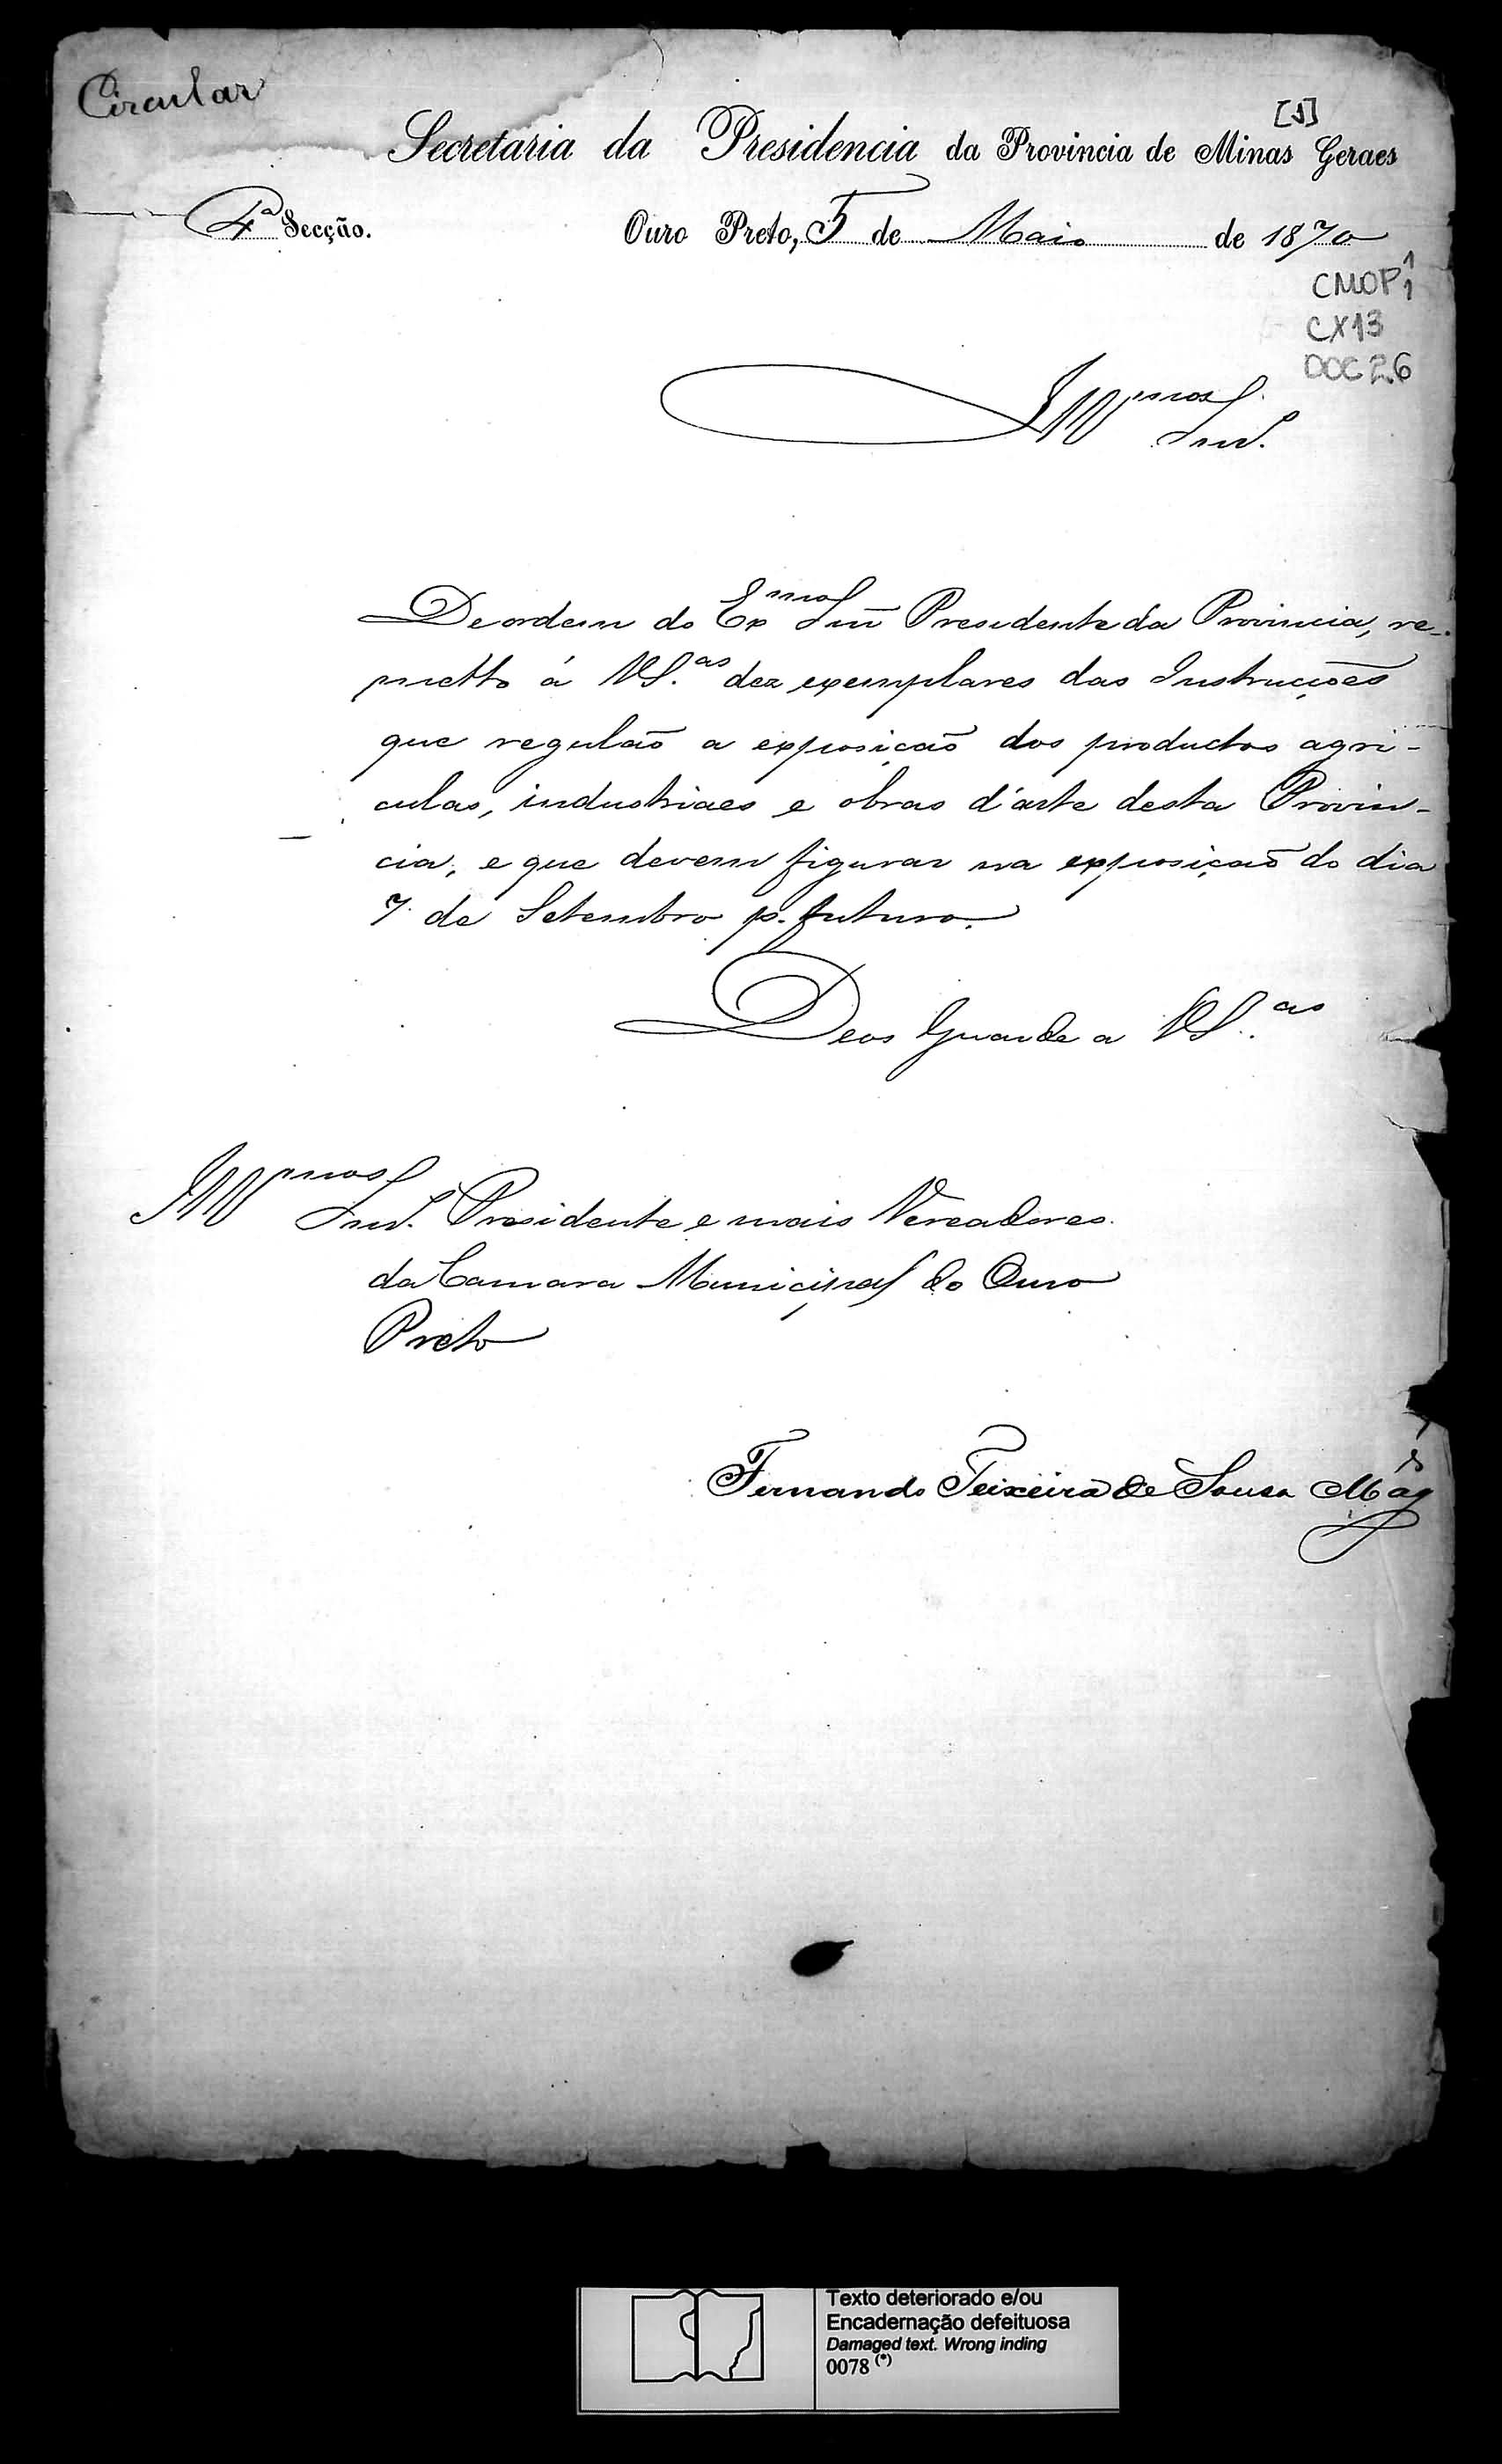 Circular
[1]
Secretaria da Presidencia da Provincia de Minas Geraes
4ª Secção.
Ouro Preto, 5 de Maio de 1870
CMOP 1/1
CX13
DOC 26
Illmos Snrs.
De ordem do Exmo Snr Presidente da Provincia, re-
metto á VS.as dez exemplares das Instrucções
que regulão a exposição dos productos agri-
culas, industriaes e obras d'arte desta Provin-
cia, e que devem figurar na exposição do dia
7 de Setembro p. futuro.
Deos Guarde a VS.as
Illmos Snrs. Presidente e mais Vereadores
da Camara Municipal do Ouro
Preto
Fernando Teixeira de Sousa Mag.es
Texto deteriorado e/ou
Encadernação defeituosa
Damaged text. Wrong inding
0078 (*)